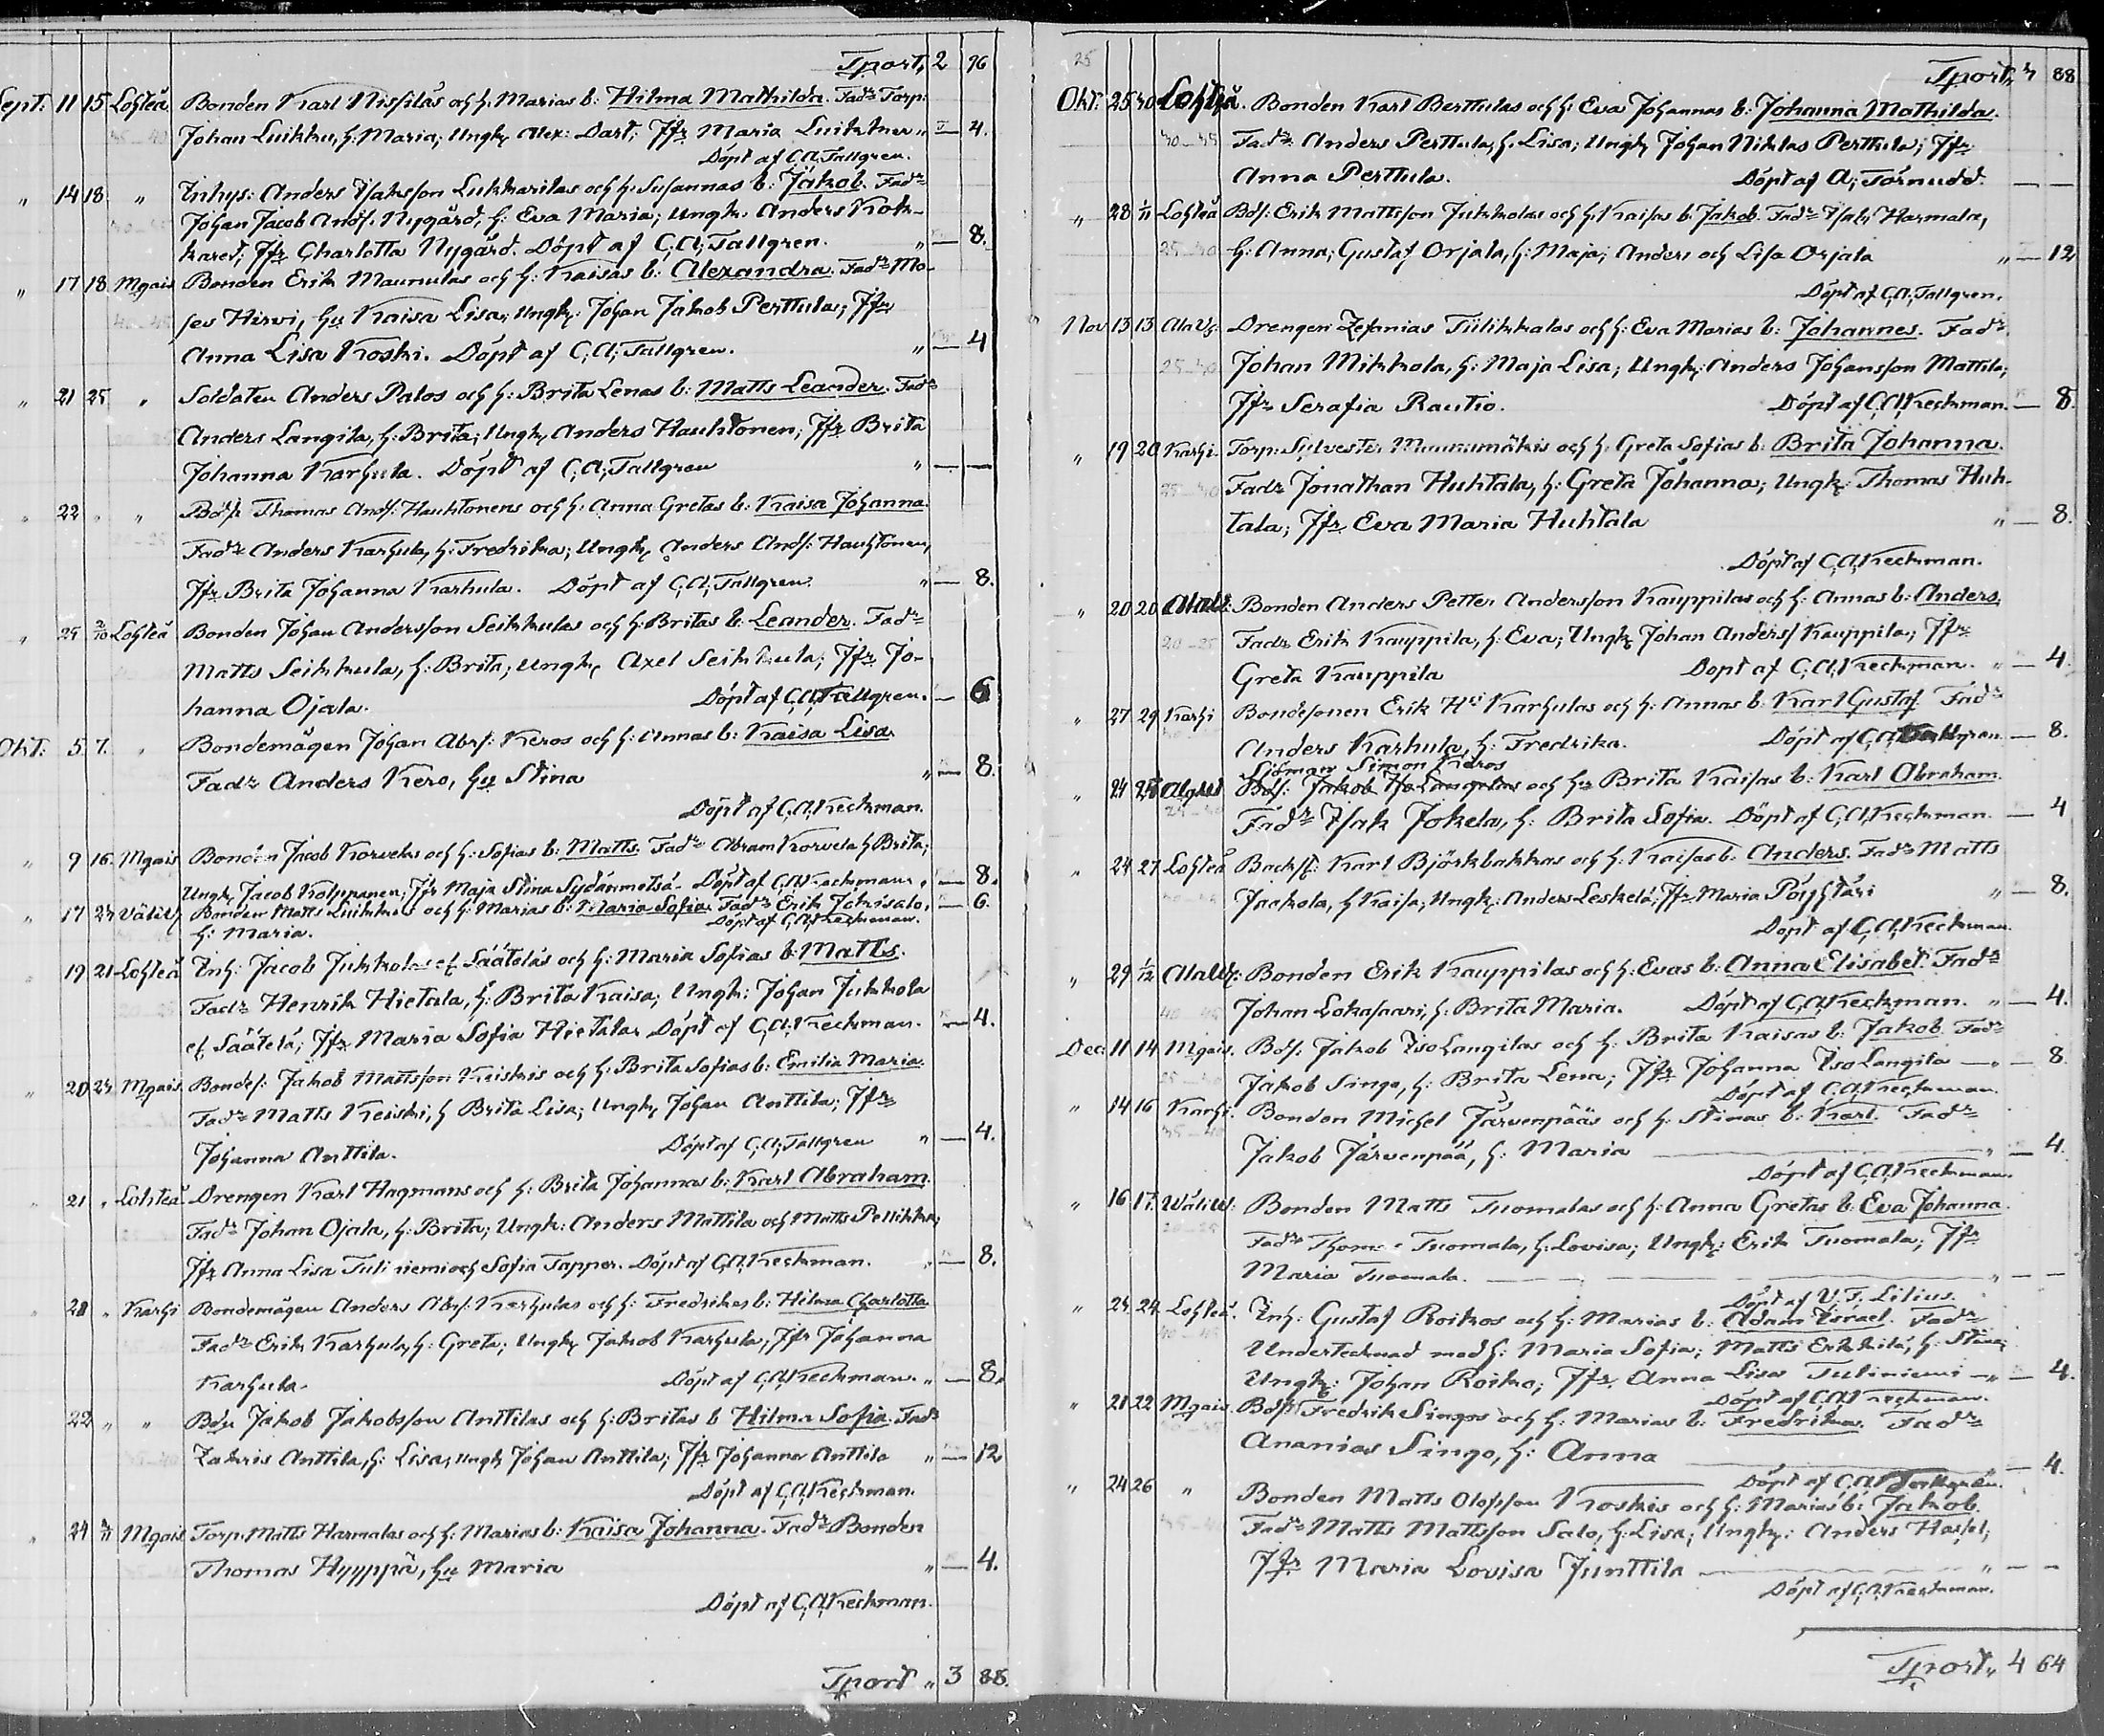 Tport, 2 96
Sept. 11 15 Lohteå Bonden Karl Nissilas och h. Marias b: Hilma Mathilda. Fadr Torp:
Johan Luikku, h: Maria; Ungk, Alex: Dart; Jfr Maria Luikku „ — 4.
Döpt af C,A,Tallgren.
„ 14 18 „ Inhys: Anders Isaksson Lukkarilas och h. Susannas b: Jakob. Fadr
Johan Jacob Andf. Nygård, h: Eva Maria; Ungk. Anders Kok-
kared; Jfr Charlotta Nygård. Döpt af C,A,Tallgren. „ — 8.
„ 17 18 Mgais Bonden Erik Maunulas och h: Kaisas b: Alexandra. Fadr Mo-
ses Hirvi, Hu Kaisa Lisa; Ungk. Johan Jakob Perttula; Jfr
Anna Lisa Koski. Döpt af C,A,Tallgren. „ — 4
„ 21 25 „ Soldaten Anders Palos och h: Brita Lenas b: Matts Leander. Fadr
Anders Langila, h: Brita; Ungk, Anders Hauhtonen; Jfr Brita
Johanna Karhula. Döpt af C,A,Tallgren „ — —
„ 22 „ „ Bdsn Thomas Andf: Hauhtonens och h. Anna Gretas b: Kaisa Johanna.
Fadr Anders Karhula, h: Fredrika; Ungk, Anders Andf: Hauhtonen,
Jfr Brita Johanna Karhula. Döpt af C,A,Tallgren. „ — 8.
„ 29 2/10 Lohteå Bonden Johan Andersson Seikkulas och h: Britas b: Leander. Fadr
Matts Seikkula, h: Brita; Ungk, Axel Seikkula; Jfr Jo-
hanna Ojala. Döpt af C,A,Tallgren. — 6
Okt: 5 7. „ Bondemågen Johan Abrs: Keros och h: Annas b: Kaisa Lisa.
Fadr Anders Kero, Hu Stina „ — 8.
Döpt af C,A,Keckman.
„ 9 16 Mgais Bonden Jacob Korvelas och h: Sofias b: Matts. Fadr Abram Korvela h Brita;
Ungk, Jacob Kolppanen; Jfr Maja Stina Sydänmetsä. Döpt af C,A,Keckman. „ — 8.
„ 17 24 Väliv Bonden Matts Luikkus och h: Marias b: Maria Sofia. Fadr Erik Jokisalo, — 6.
h: Maria. Döpt af C,A,Keckman.
„ 19 21 Lohteå Inh: Jacob Jukkolas el Säätelas och h: Maria Sofias b: Matts.
Fadr Henrik Hietala, h: Brita Kaisa; Ungk: Johan Jukkola
el Säätelä; Jfr Maria Sofia Hietala. Döpt af C,A,Keckman. — 4.
„ 20 24 Mgais Bondes: Jakob Mattsson Keiskis och h: Brita Sofias b: Emilia Maria.
Fadr Matts Keiski, h Brita Lisa; Ungk, Johan Anttila; Jfr
Johanna Anttila. Döpt af C,A,Tallgren „ — 4.
„ 21 „ Lohteå Drengen Karl Hagmans och h: Brita Johannas b: Karl Abraham.
Fadr Johan Ojala, h: Brita; Ungk: Anders Mattila och Matts Pellikka;
Jfr Anna Lisa Tuliniemi och Sofia Tapper. Döpt af C,A,Keckman. „ — 8.
„ 20 „ Karhi Bondemågen Anders Abrs: Karhulas och h: Fredrikas b: Hilma Charlotta.
Fadr Erik Karhula, h: Greta; Ungk, Jakob Karhula; Jfr Johanna
Karhula. Döpt af C,A,Keckman. „ — 8.
22 „ „ Bdn Jakob Jakobsson Anttilas och h: Britas b Hilma Sofia. Fadr
Zakris Anttila, h: Lisa; Ungk Johan Anttila; Jfr Johanna Anttila „ — 12
Döpt af C,A,Keckman.
„ 24 Mgais Torp. Matts Harmalas och h: Marias b: Kaisa Johanna. Fadr Bonden
Thomas Hyyppä, Hu Maria „ — 4.
Döpt af C,A,Keckman.
Tport „ 3 88.
25
Tport, 88
Okt: 25 30 Lohteå. Bonden Karl Perttulas och h: Eva Johannas b: Johanna Mathilda.
Fadr Anders Perttula, h. Lisa; Ungk, Johan Niklas Perttula; Jfr
Anna Perttula. Döpt af A, Törnudd. — —
„ 28 1/11 Lohteå Bds: Erik Mattsson Jukkolas och h: Kaisas b: Jakob. Fadr Isak Harmala,
h: Anna; Gustaf Orjala, h: Maja; Anders och Lisa Orjala „ — 12
Döpt af C,A,Tallgren.
Nov 13 13 AlaVh. Drengen Zefanias Tiilikkalas och h: Eva Marias b: Johannes. Fadr
Johan Mikkola, h: Maja Lisa; Ungk: Anders Johansson Mattila;
Jfr Serafia Rautio. Döpt af C,A,Keckman. — 8.
„ 19 20 Karhi. Torp: Sylvester Maunumäkis och h. Greta Sofias b: Brita Johanna.
Fadr Jonathan Huhtala, h: Greta Johanna; Ungk: Thomas Huh-
tala; Jfr Eva Maria Huhtala „ — 8.
Döpt af C,A,Keckman.
„ 20 20 AlaV: Bonden Anders Petter Andersson Kauppilas och h: Annas b: Anders.
Fadr Erik Kauppila, h: Eva; Ungk Johan Anders/ Kauppila; Jfr
Greta Kauppila Döpt af C,A,Keckman. „ — 4.
„ 27 29 Karhi Bondesonen Erik Karhulas och h: Annas b: Karl Gustaf. Fadr
Anders Karhula, h: Fredrika. Döpt af C,A,Tallgren — 8.
Sjöman Simon Keros
„ 24 28 Bds: Jakob Iso Langilas och hu Brita Kaisas b: Karl Abraham.
Fadr Isak Jokela, h: Brita Sofia. Döpt af C,A,Keckman. — 4
„ 24 27 Lohteå Backst: Karl Björkbakkas och h: Kaisas b: Anders. Fadr Matts
Jaakola, h Kaisa; Ungk: Anders Leskelä; Jfr Maria Pöyhtäri „ — 8.
Döpt af C,A,Keckman.
„ 29 1/12 AlaVh: Bonden Erik Kauppilas och h: Evas b: Anna Elisabet. Fadr
Johan Lokasaari, h: Brita Maria. Döpt af C,A,Keckman. „ — 4.
Dec: 11 14 Mgais. Bds: Jakob Iso Langilas och h: Brita Kaisas b: Jakob. Fadr
Jakob Singo, h: Brita Lena; Jfr Johanna Iso Langila — „ — 8.
Döpt af C,A,Keckman.
„ 14 16 Karhi. Bonden Michel Järvenpääs och h: Stinas b: Karl. Fadr
Jakob Järvenpää, h: Maria „ — 4.
Döpt af C,A,Keckman.
„ 16 17 Väliv: Bonden Matts Tuomalas och h: Anna Gretas b: Eva Johanna.
Fadr Thomas Tuomala, h: Lovisa; Ungk: Erik Tuomala; Jfr
Maria Tuomala. „ — —
Döpt af V. F. Lilius.
„ 24 24 Lohteå. Inh: Gustaf Roikos och h: Marias b: Adam Israel. Fadr
Undertecknad med h: Maria Sofia; Matts Erkkilä, h: Stina;
Ungk: Johan Roiko; Jfr Anna Lisa Tuliniemi — „ — 4.
Döpt af C,A,Keckman.
„ 21 22 Mgais. Bds Fredrik Singos och h: Marias b: Fredrika. Fadr
Ananias Singo, h: Anna „ — 4.
Döpt af C,A,Tallgren.
„ 24 26 „ Bonden Matts Olofsson Koskis och h: Marias b: Jakob.
Fadr Matts Mattsson Salo, h: Lisa; Ungk: Anders Hassel;
Jfr Maria Lovisa Junttila „ — —
Döpt af C,A,Keckman.
Tport „ 4 64